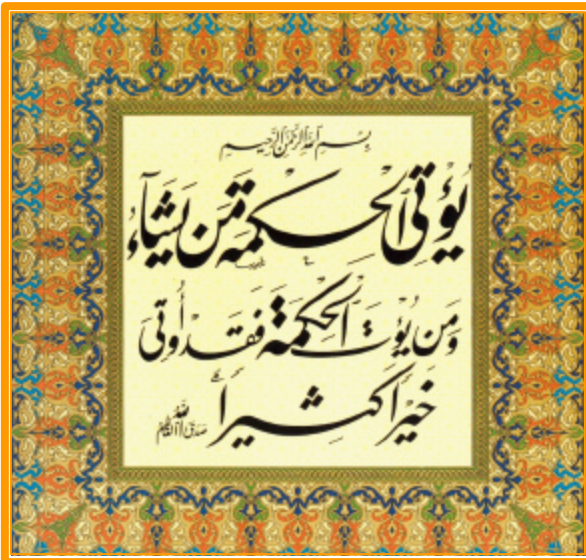 بسم الله الرحمن الرحيم
يُؤْتِي الْحِكْمَةَ مَن يَشَآءُ
وَمَن يُؤْتَ الْحِكْمَةَ فَقَدْ أُوتِيَ
خَيْرًا كَثِيرًا صدق الله